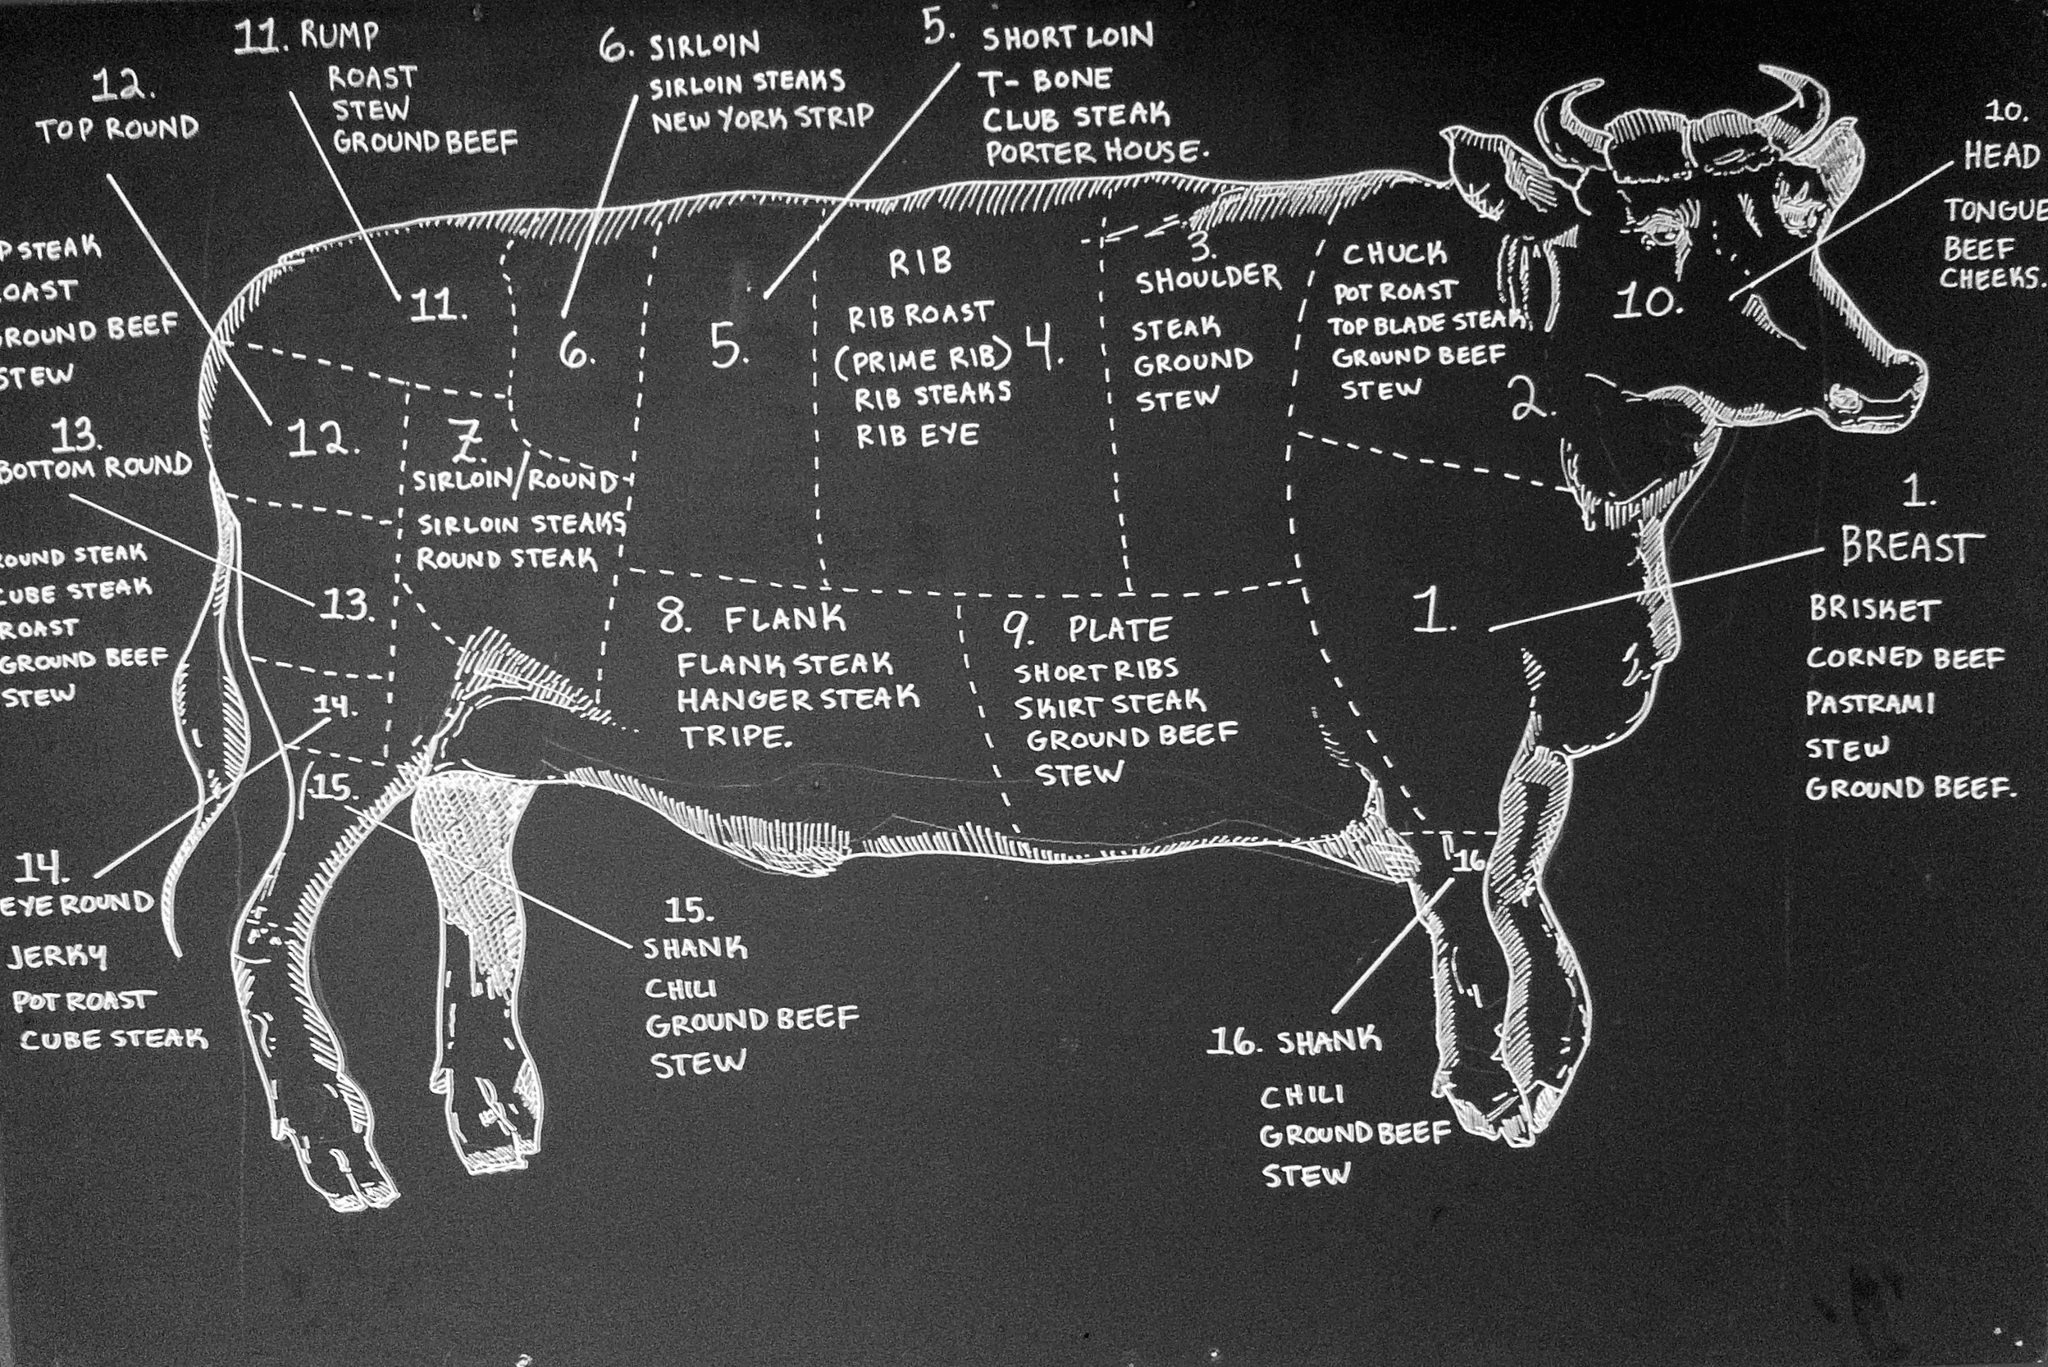 11. RUMP
ROAST
STEW
GROUND BEEF
6. SIRLOIN
SIRLOIN STEAKS
NEW YORK STRIP
5. SHORT LOIN
T-BONE
CLUB STEAK
PORTER HOUSE.
12.
TOP ROUND
P STEAK
OAST
GROUND BEEF
STEW
10.
HEAD
TONGUE
BEEF
CHEEKS.
11.
6.
5.
RIB
RIB ROAST
(PRIME RIB) 4.
RIB STEAKS
RIB EYE
3.
SHOULDER
STEAK
GROUND
STEW
CHUCK
POT ROAST
TOP BLADE STEAK
GROUND BEEF
STEW
2.
10.
13.
BOTTOM ROUND
OUND STEAK
CUBE STEAK
ROAST
GROUND BEEF
STEW
12.
7.
SIRLOIN/ROUND
SIRLOIN STEAKS
ROUND STEAK
13.
8. FLANK
FLANK STEAK
HANGER STEAK
TRIPE.
9. PLATE
SHORT RIBS
SKIRT STEAK
GROUND BEEF
STEW
1.
1.
BREAST
BRISKET
CORNED BEEF
PASTRAMI
STEW
GROUND BEEF.
14.
15.
16
14.
EYE ROUND
JERKY
POT ROAST
CUBE STEAK
15.
SHANK
CHILI
GROUND BEEF
STEW
16. SHANK
CHILI
GROUND BEEF
STEW